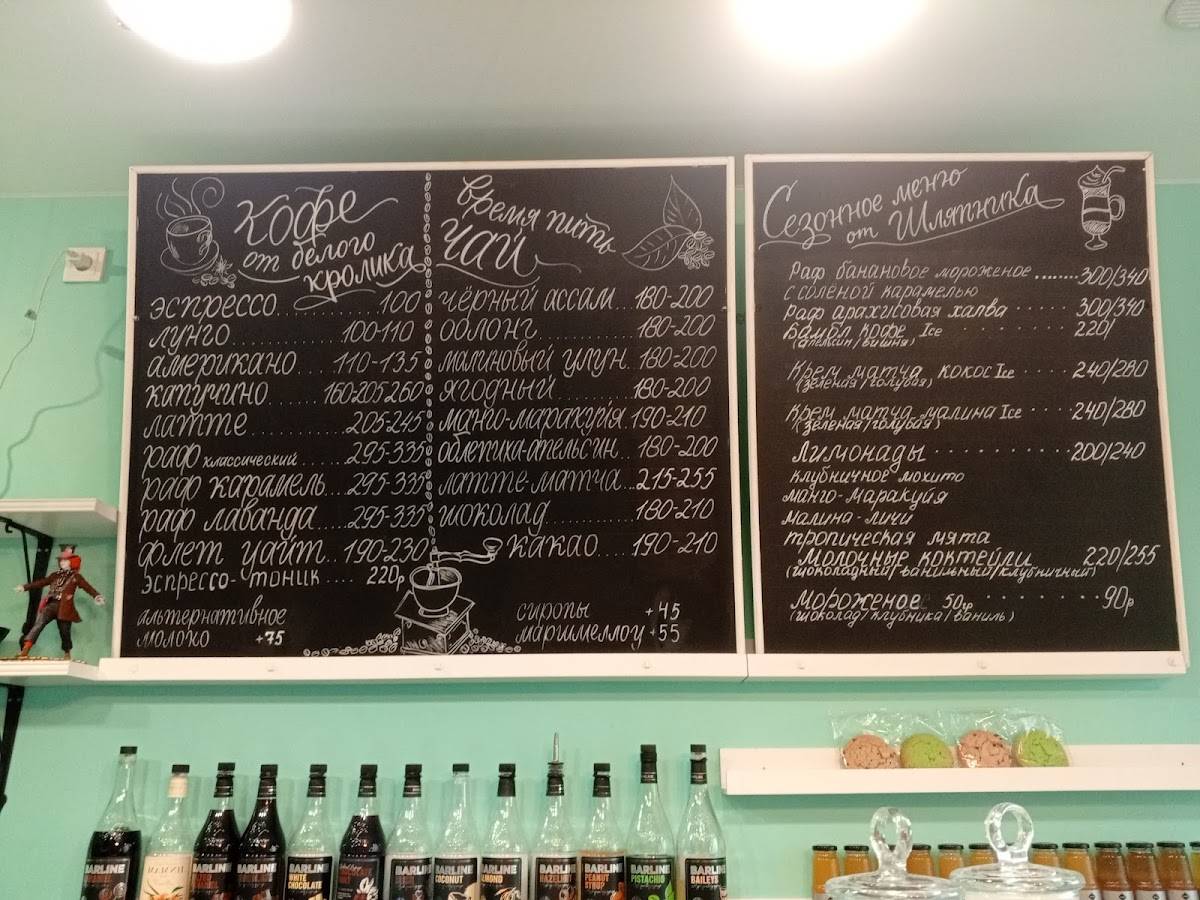 Кофе
от белого
кролика
эспрессо ........ 100
лунго ........ 100-110
американо .... 110-135
капучино ..... 160-205-260
латте ............ 205-245
раф классический ..... 295-335
раф карамель .. 295-335
раф лаванда .... 295-335
флет уайт .. 190-230
эспрессо-тоник .... 220р
альтернативное
молоко +75
время пить
чай
чёрный ассам .. 180-200
оолонг ........ 180-200
малиновый улун .. 180-200
ягодный ....... 180-200
манго-маракуйя 190-210
облепиха-апельсин .. 180-200
латте-матча .. 215-255
шоколад ........... 180-210
какао .... 190-210
сиропы +45
маршмеллоу +55
Сезонное меню
от Шляпника
Раф банановое мороженое ........ 300/340
с солёной карамелью
Раф арахисовая халва ..... 300/340
Бамбл кофе Ice ........ 220/
(апельсин/вишня)
Крем матча кокос Ice ..... 240/280
(зеленая/голубая)
Крем матча малина Ice ..... 240/280
(зеленая/голубая)
Лимонады ............ 200/240
клубничное мохито
манго-маракуйя
малина-личи
тропическая мята
Молочные коктейли 220/255
(шоколадный/ванильный/клубничный)
Мороженое 50гр ........ 90р
(шоколад/клубника/ваниль)
BARLINE
BARLINE
BARLINE
BARLINE WHITE CHOCOLATE
BARLINE
BARLINE COCONUT
BARLINE
BARLINE HAZELNUT
BARLINE PEANUT SYRUP
BARLINE PISTACHIO
BARLINE BAILEYS